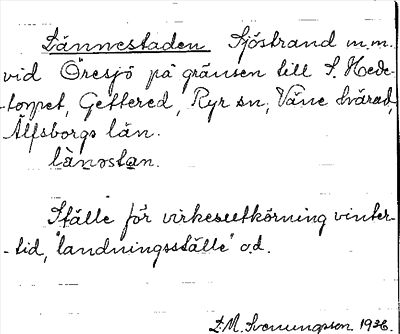 Lännestaden Sjöstrand m.m.
vid Öresjö på gränsen till S. Hede-
-torpet, Gettered, Ryr sn, Väne härad,
Älfsborgs län.
lànnstan.
Ställe för virkesutkörning vinter-
-tid, "landningsställe" o.d.
D.M. Svenungsson 1936.